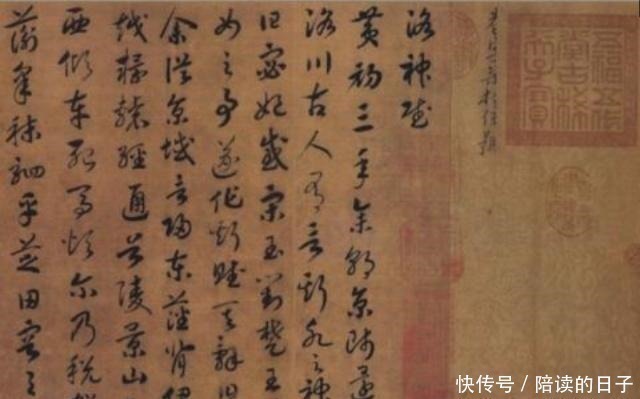 五福五代
堂古稀
天子寶
洛神賦
黃初三年余朝京師還
洛川古人有言斯水之神
曰宓妃感宋玉對楚王
女之事遂作斯賦其辭曰
余從京域言歸東藩背伊
越轘轅經通谷陵景山
西傾車殆馬煩爾乃稅
蘅皋秣駟乎芝田容與
快传号／陪读的日子